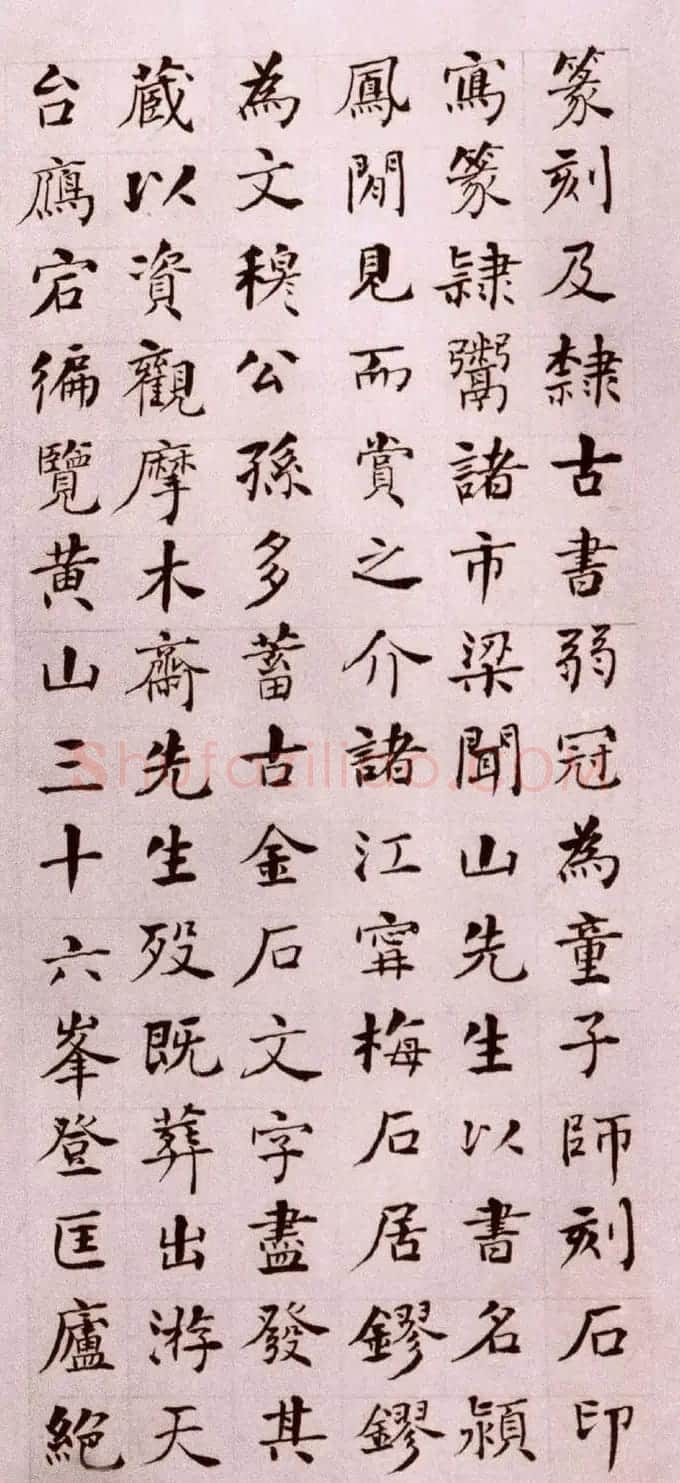 篆刻及隸古書弱冠為童子師刻石印
寫篆隷鬻諸市梁聞山先生以書名潁
鳳閒見而賞之介諸江甯梅石居鏐鏐
為文穆公孫多蓄古金石文字盡發其
蔵以資觀摩木齋先生歿既葬出游天
台鴈宕徧覽黄山三十六峯登匡廬絶
Shufaziliao.com